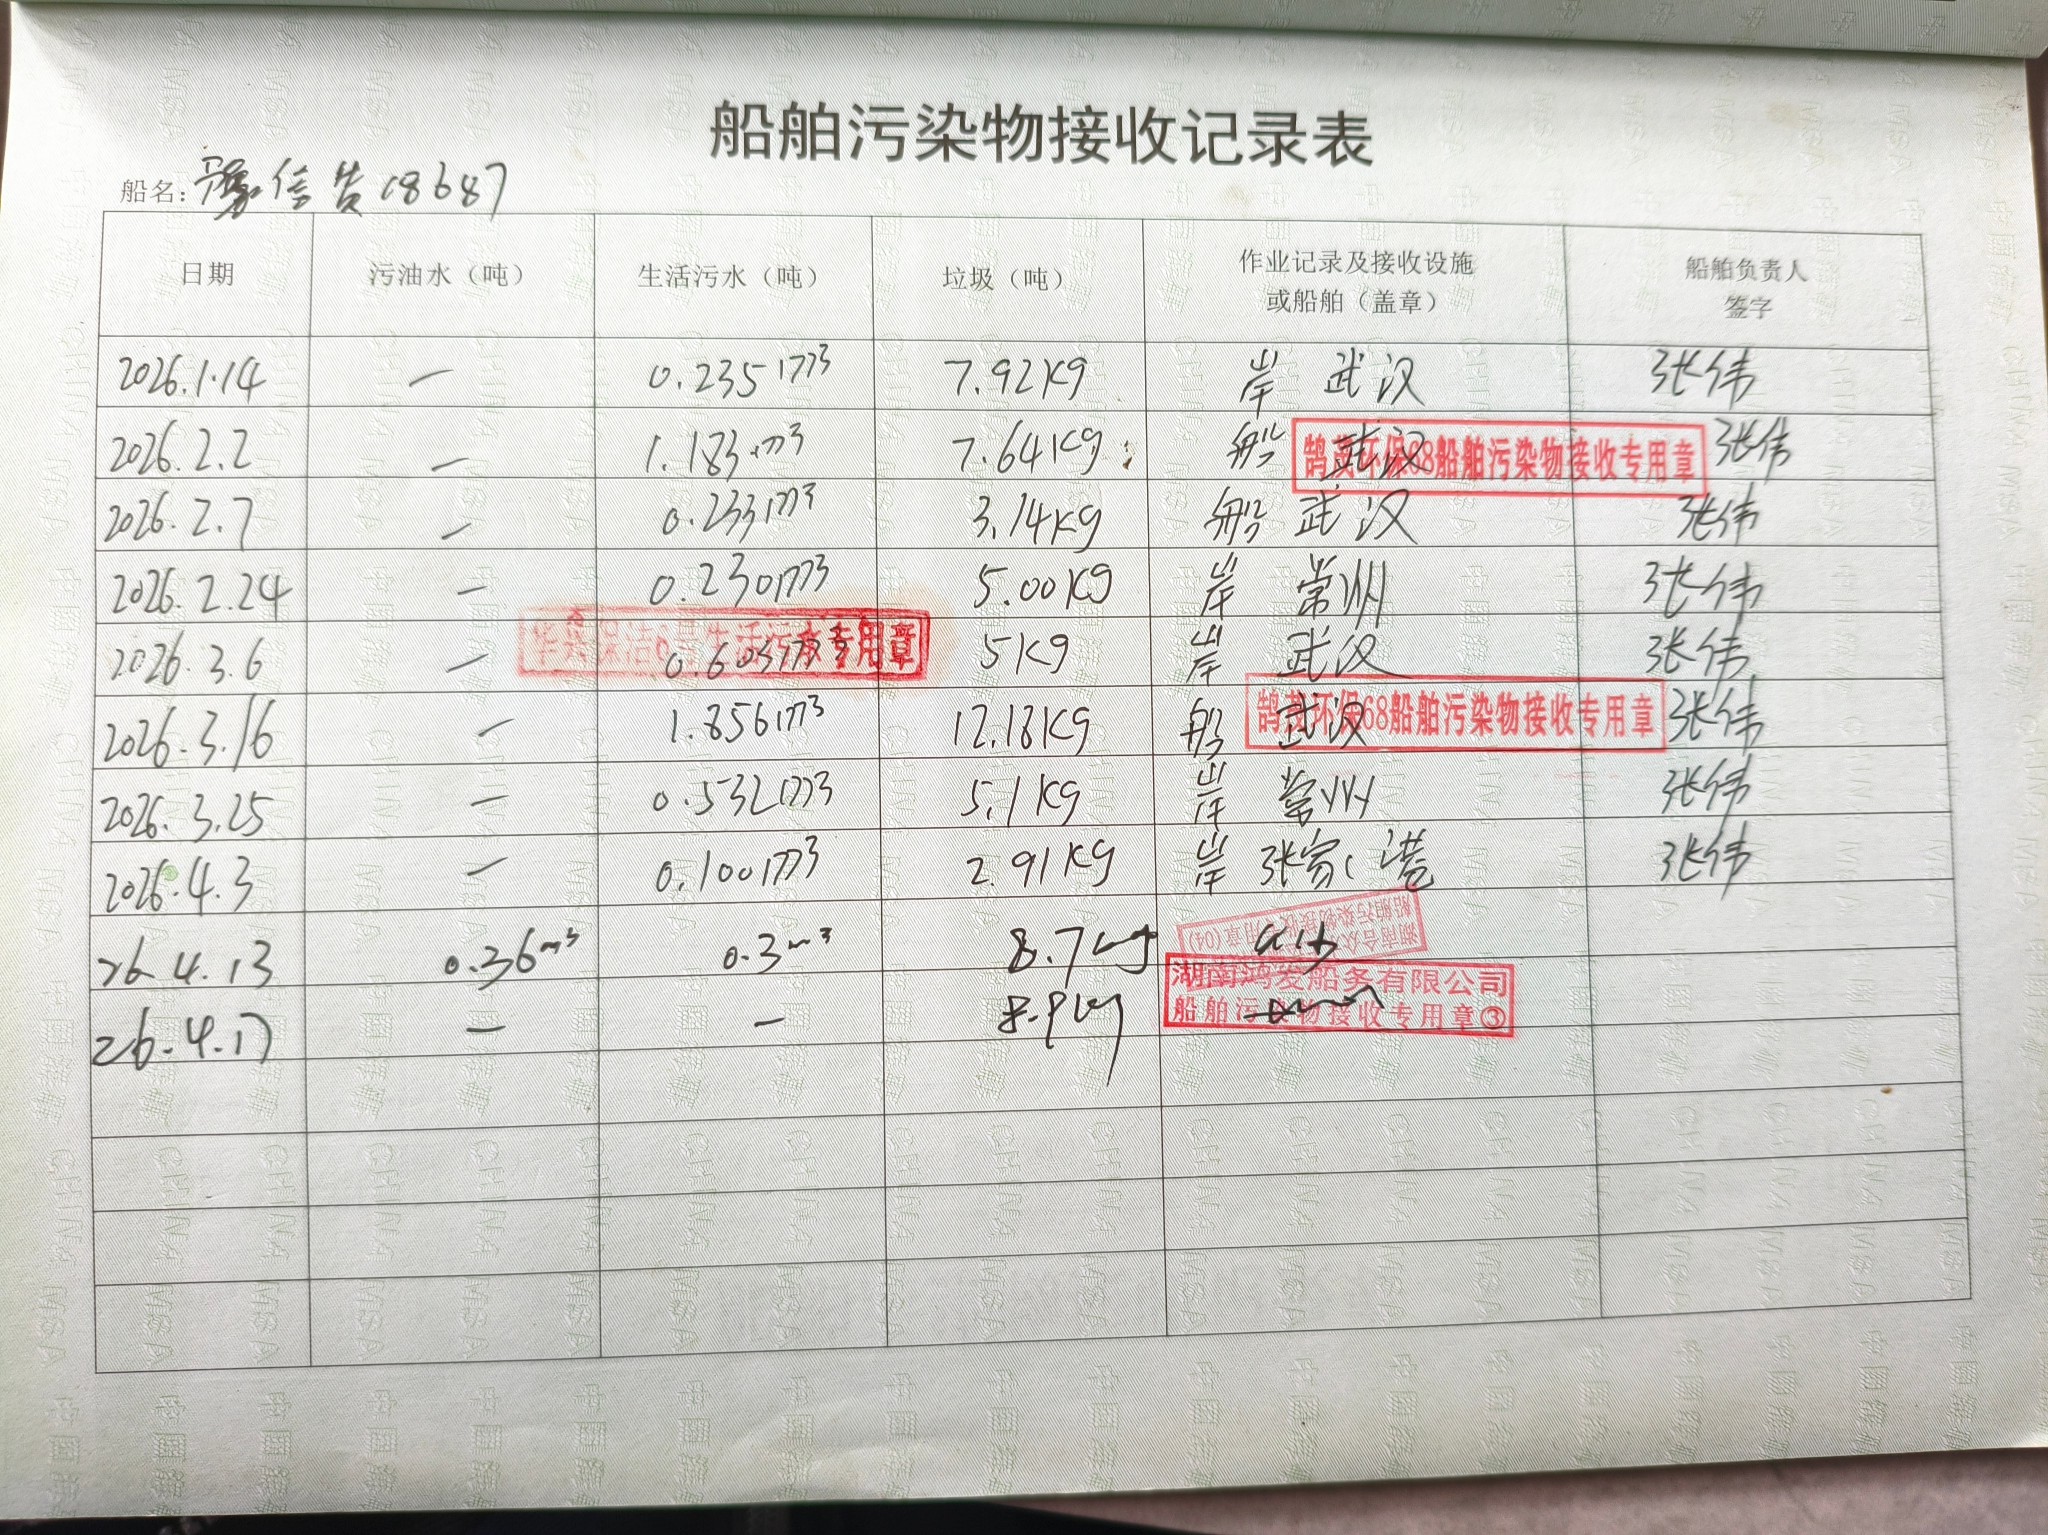 船舶污染物接收记录表
船名：豫信货18687
日期 污油水（吨） 生活污水（吨） 垃圾（吨） 作业记录及接收设施或船舶（盖章） 船舶负责人签字
2026.1.14 — 0.235m³ 7.92Kg 岸 武汉 张伟
2026.2.2 — 1.183m³ 7.64Kg 船 武汉 张伟
鹄黄环保68船舶污染物接收专用章
2026.2.7 — 0.233m³ 3.14Kg 船 武汉 张伟
2026.2.24 — 0.230m³ 5.00Kg 岸 常州 张伟
2026.3.6 — 0.603m³ 5Kg 岸 武汉 张伟
生活污水专用章
2026.3.16 — 1.856m³ 12.18Kg 船 武汉 张伟
鹄黄环保68船舶污染物接收专用章
2026.3.25 — 0.532m³ 5.1Kg 岸 常州 张伟
2026.4.3 — 0.100m³ 2.91Kg 岸 张家港 张伟
26.4.13 0.36m³ 0.3m³ 8.7kg
26.4.17 — — 8.9kg
湖南鸿发船务有限公司
船舶污染物接收专用章③